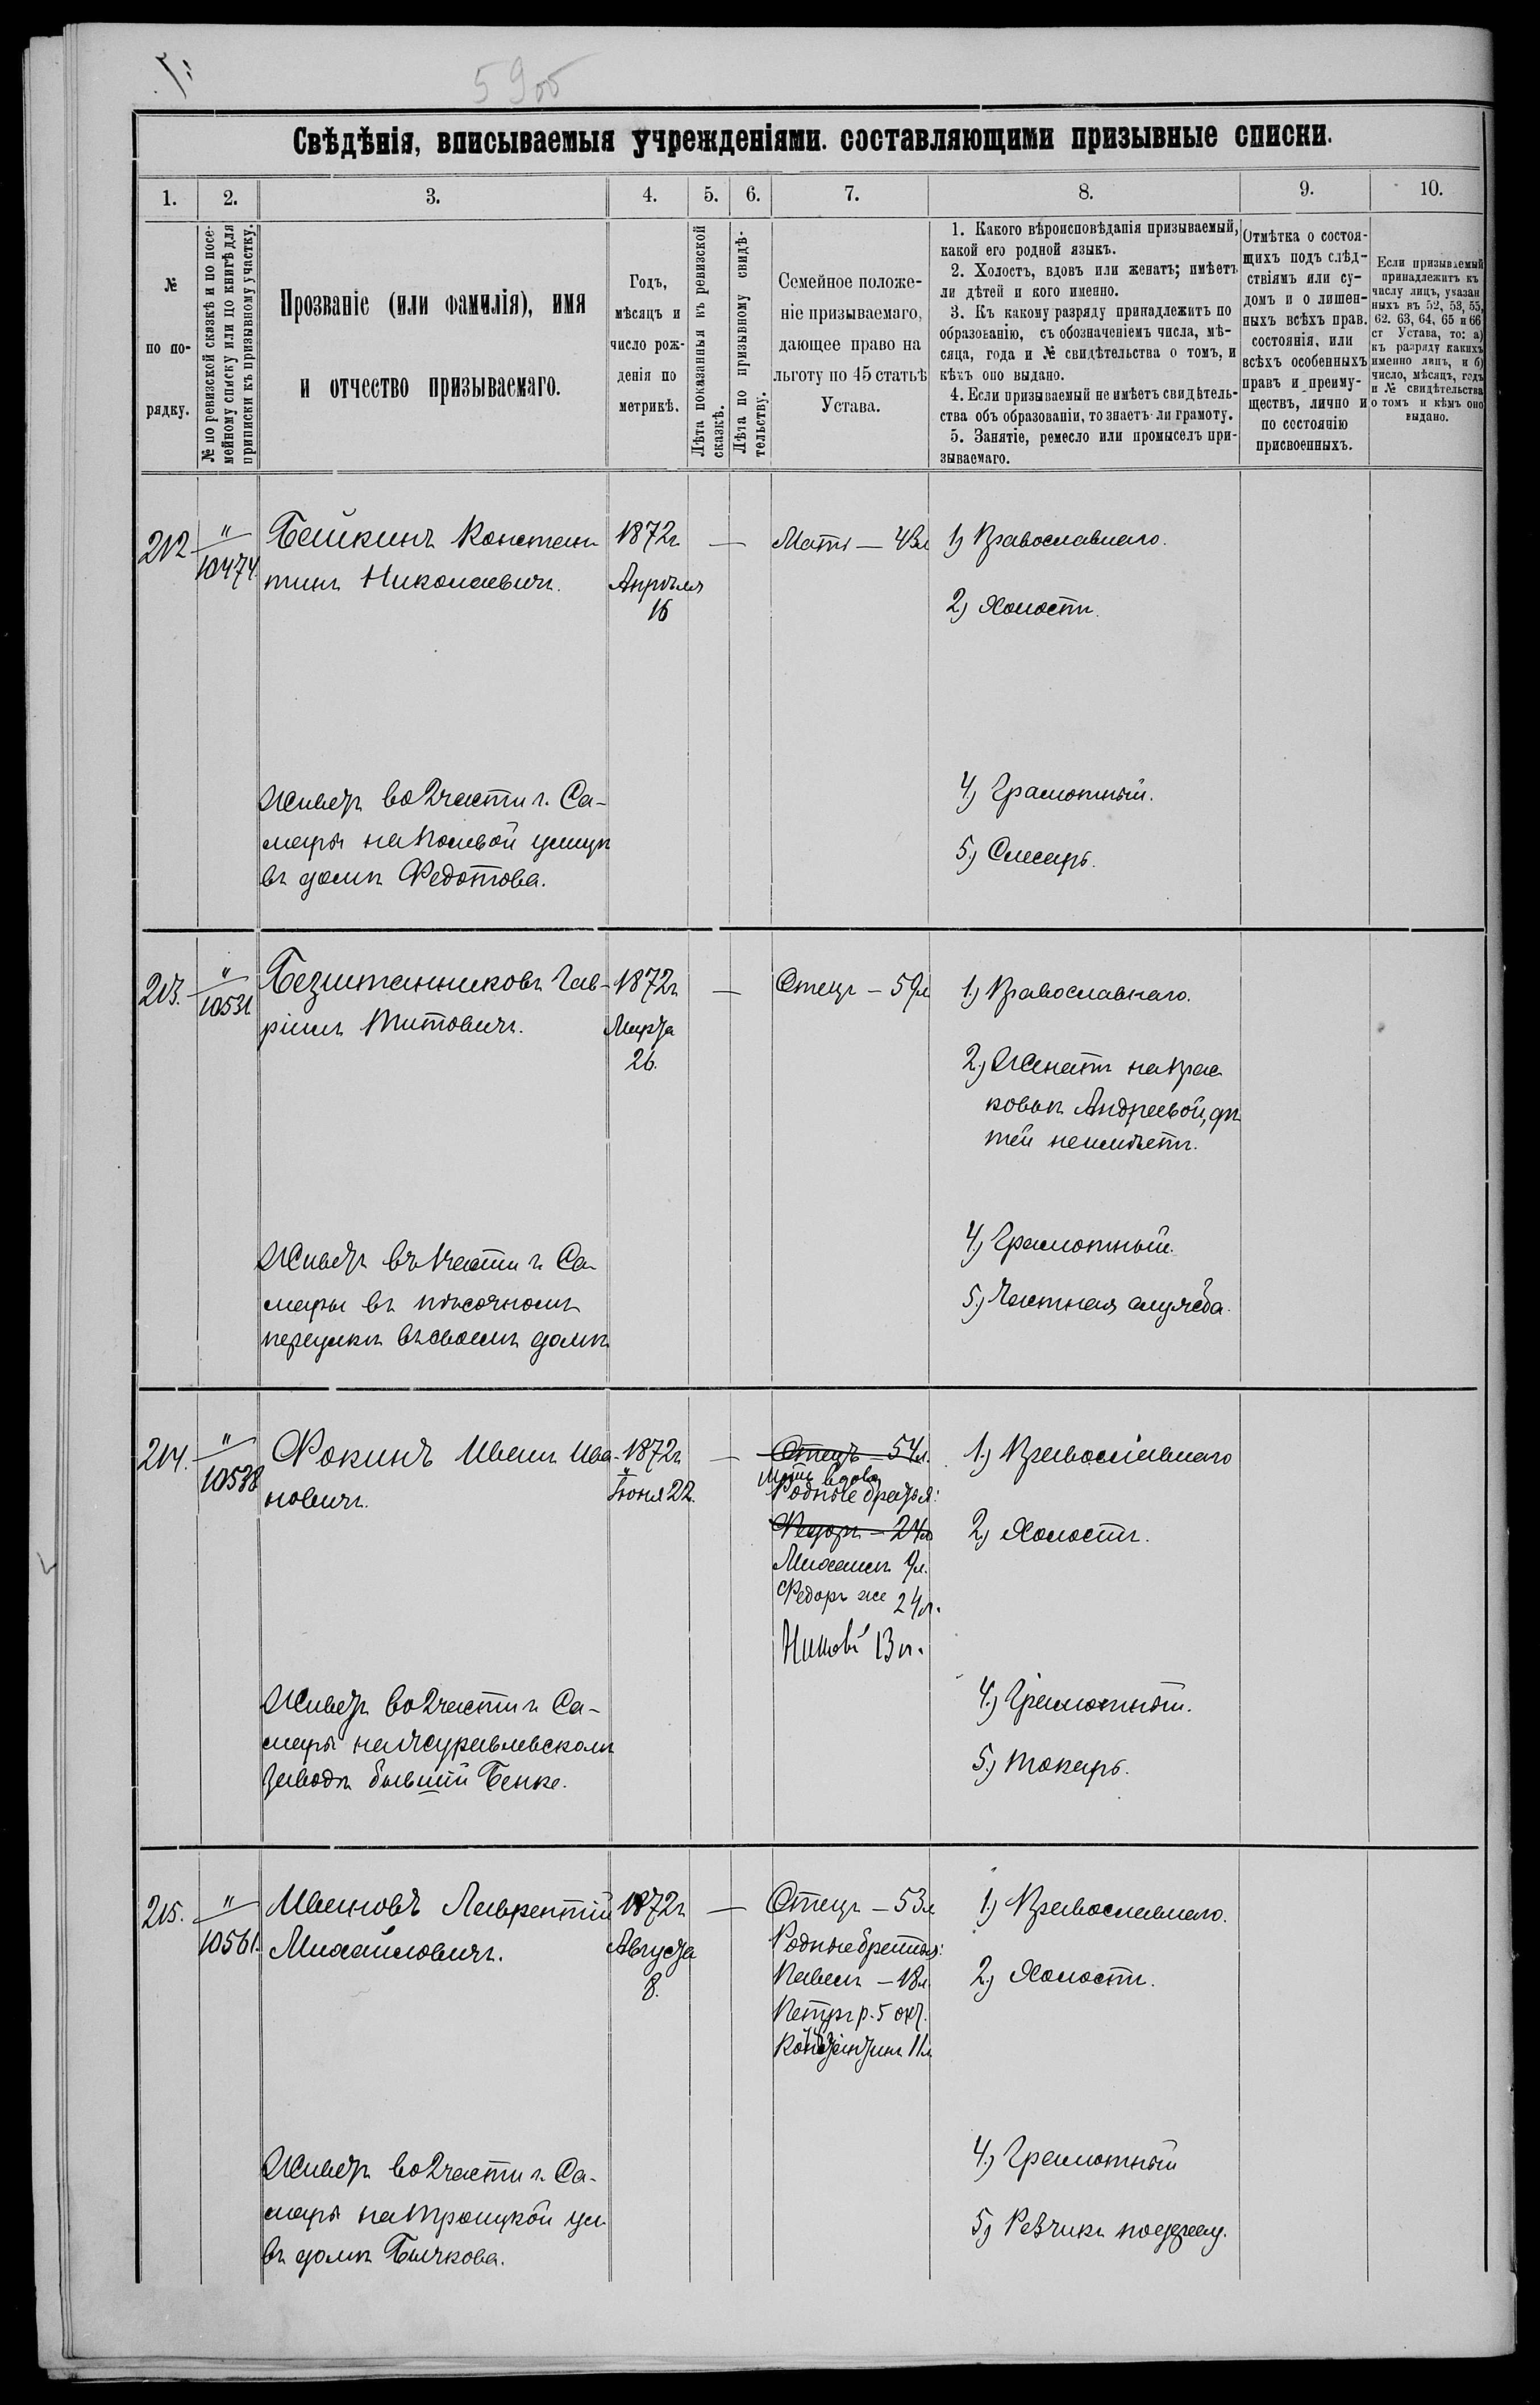 Свѣдѣнія, вписываемыя учрежденіями. составляющими призывные списки.
1. 2. 3. 4. 5. 6. 7. 8. 9. 10.
№
по по-
рядку.
№ по ревизской сказкѣ и по посе-
мейному списку или по книгѣ для
приписки къ призывному участку.
Прозваніе (или фамилія), имя
и отчество призываемаго.
Годъ,
мѣсяцъ и
число рож-
денія по
метрикѣ.
Лѣта показанныя къ ревизской
сказкѣ.
Лѣта по призывному свидѣ-
тельству.
Семейное положе-
ніе призываемаго,
дающее право на
льготу по 45 статьѣ
Устава.
1. Какого вѣроисповѣданія призываемый,
какой его родной языкъ.
2. Холостъ, вдовъ или женатъ; имѣетъ
ли дѣтей и кого именно.
3. Къ какому разряду принадлежитъ по
образованію, съ обозначеніемъ числа, мѣ-
сяца, года и № свидѣтельства о томъ, и
кѣмъ оно выдано.
4. Если призываемый не имѣетъ свидѣтель-
ства объ образованіи, то знаетъ-ли грамоту.
5. Занятіе, ремесло или промыселъ при-
зываемаго.
Отмѣтка о состоя-
щихъ подъ слѣд-
ствіямъ или су-
домъ и о лишен-
ныхъ всѣхъ прав.
состоянія, или
всѣхъ особенныхъ
правъ и преиму-
ществъ, лично и
по состоянію
присвоенныхъ.
Если призываемый
принадлежитъ къ
числу лицъ, указан
ныхъ въ 52, 53, 55,
62. 63, 64, 65 и 66
ст Устава, то: а)
къ разряду какихъ
именно лицъ, и б)
число, мѣсяцъ, годъ
и № свидѣтельства
о томъ и кѣмъ оно
выдано.
212 " 10474 Бейкинъ Констан
тинъ Николаевичъ.
1872г
Апрѣля
16
—
Мать —
1) Православнаго.
2) Холостъ.
Живетъ во 2 части г. Са-
мары на Полевой улицѣ
въ домѣ Федотова.
4) Грамотный.
5) Слесарь.
213. " 10531 Безштанниковъ Гав-
ріилъ Титовичъ.
1872г
Марта
26.
—
Отецъ — 59л
1) Православнаго.
2) Женатъ на Прас
ковьѣ Андреевой, дѣ
тей неимѣетъ.
Живетъ въ 1 части г. Са
мары въ пѣсочномъ
переулкѣ въ своемъ домѣ
4) Грамотный.
5) Частная служба.
214. " 10538 Фокинъ Иванъ Ива-
новичъ.
1872г
Іюня 22.
—
Отецъ — 54л.
Мать вдова
Родные братья:
Федоръ — 24л
Михаилъ 9л.
Федоръ же 24л.
13 л.
1) Православнаго
2) Холостъ.
Живетъ во 2 части г. Са-
мары на Журавлевскомъ
заводѣ бывшій Бенке.
4) Грамотный.
5) Токарь.
215. " 10561. Ивановъ Лаврентій
Михайловичъ.
1872г
Августа
8.
—
Отецъ — 53л
Родные братья:
Павелъ — 18л
Петръ р. 5 окт.
Константинъ 11л
1) Православнаго.
2) Холостъ.
Живетъ во 2 части г. Са-
мары на Троицкой ул
въ домѣ Бычкова.
4) Грамотный
5) Рѣзчикъ по дерев.